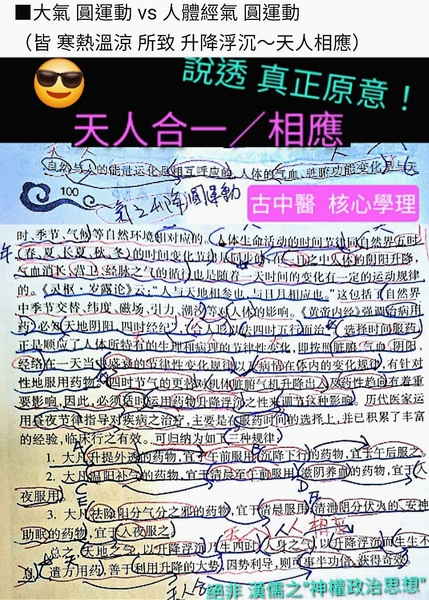 ■大氣 圓運動 vs 人體經氣 圓運動
（皆 寒熱溫涼 所致 升降浮沉～天人相應）
說透 真正原意！
天人合一／相應
自然与人的能量运化是相互呼应的，人体的气血、脏腑功能变化是与天
100
古中醫 核心學理
时、季节、气候等自然环境相对应的。人体生命活动的时间节律同自然界五时
（春、夏、长夏、秋、冬）的时间变化节律是同步的，在一日之中人体的阴阳升降、
气血消长、营卫、经脉之气的循行也是随着一天时间的变化有一定的运动规律
的。《灵枢·岁露论》云：“人与天地相参也，与日月相应也。”这包括了自然界
中季节交替、纬度、磁场、引力、潮汐等对人体的影响。《黄帝内经》强调治病用
药必先天地阴阳，四时经纪，
选择时间服药
正是顺应了人体所特有的生理和病理的节律性变化，即按照脏腑气血阴阳
经络在一天当中盛衰的节律性变化规律以及病情在体内的变化规律，有针对
性地服用药物。四时节气的更替对机体脏腑气机升降出入及药性趋向有着重
要影响，因此，必须适时运用药物升降浮沉之性来调节这种影响。历代医家运
用昼夜节律指导对疾病之治疗，主要是在服药时间的选择上，并已积累了丰富
的经验，临床行之有效。可归纳为如下三种规律：
1. 大凡升提外透的药物，宜于午前服用；沉降下行的药物，宜于午后服之。
2. 大凡温阳补气的药物，宜于清晨至午前服用；滋阴养血的药物，宜于入
夜服用。
3. 大凡祛除阳分气分之邪的药物，宜于清晨服用；清泄阴分伏火的、安神
助眠的药物，宜于入夜服之。
总之，天地之气，以升降浮沉乃生四时；人身之气，以升降浮沉而生生不
息，遣方用药，善于利用升降的大势，因势利导，则可事半功倍，获得奇效。
絕非 漢儒之"神權政治思想"